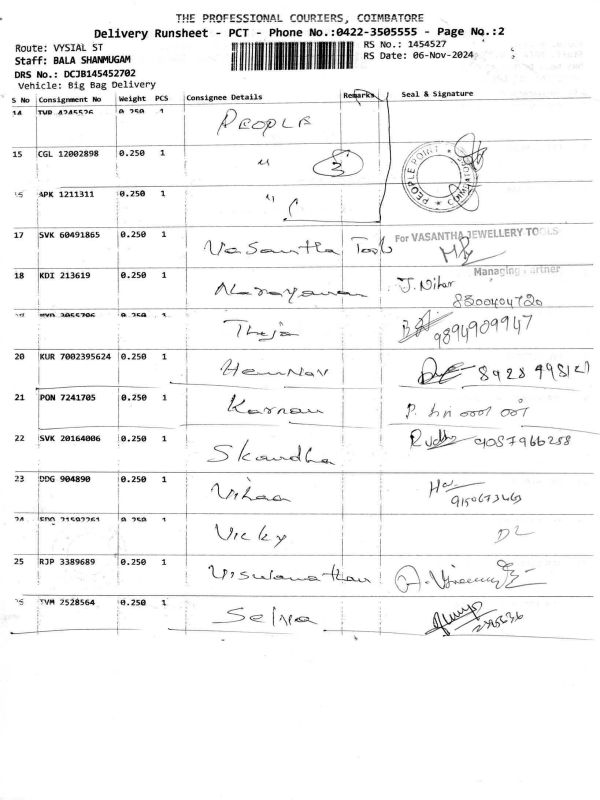 THE PROFESSIONAL COURIERS, COIMBATORE
Delivery Runsheet - PCT - Phone No.:0422-3505555 - Page No.:2
Route: VYSIAL ST RS No.: 1454527
Staff: BALA SHANMUGAM RS Date: 06-Nov-2024
DRS No.: DCJB145452702
Vehicle: Big Bag Delivery
S No Consignment No Weight PCS Consignee Details Remarks Seal & Signature
14 TVR 4245526 0.250 1 PEOPLE
15 CGL 12002898 0.250 1 " 3
PEOPLE POINT
16 APK 1211311 0.250 1 "
17 SVK 60491865 0.250 1 Vasantha Tools For VASANTHA JEWELLERY TOOLS
Managing Partner
18 KDI 213619 0.250 1 Narayanan J. Nihar
8200404720
0.250 1 Theja 9894909947
20 KUR 7002395624 0.250 1 HemNav
21 PON 7241705 0.250 1 Karnan
22 SVK 20164006 0.250 1 Skandha
23 DDG 904890 0.250 1 Vihaa
24 0.250 1 Vicky
25 RJP 3389689 0.250 1 Viswanathan
26 TVM 2528564 0.250 1 Selva